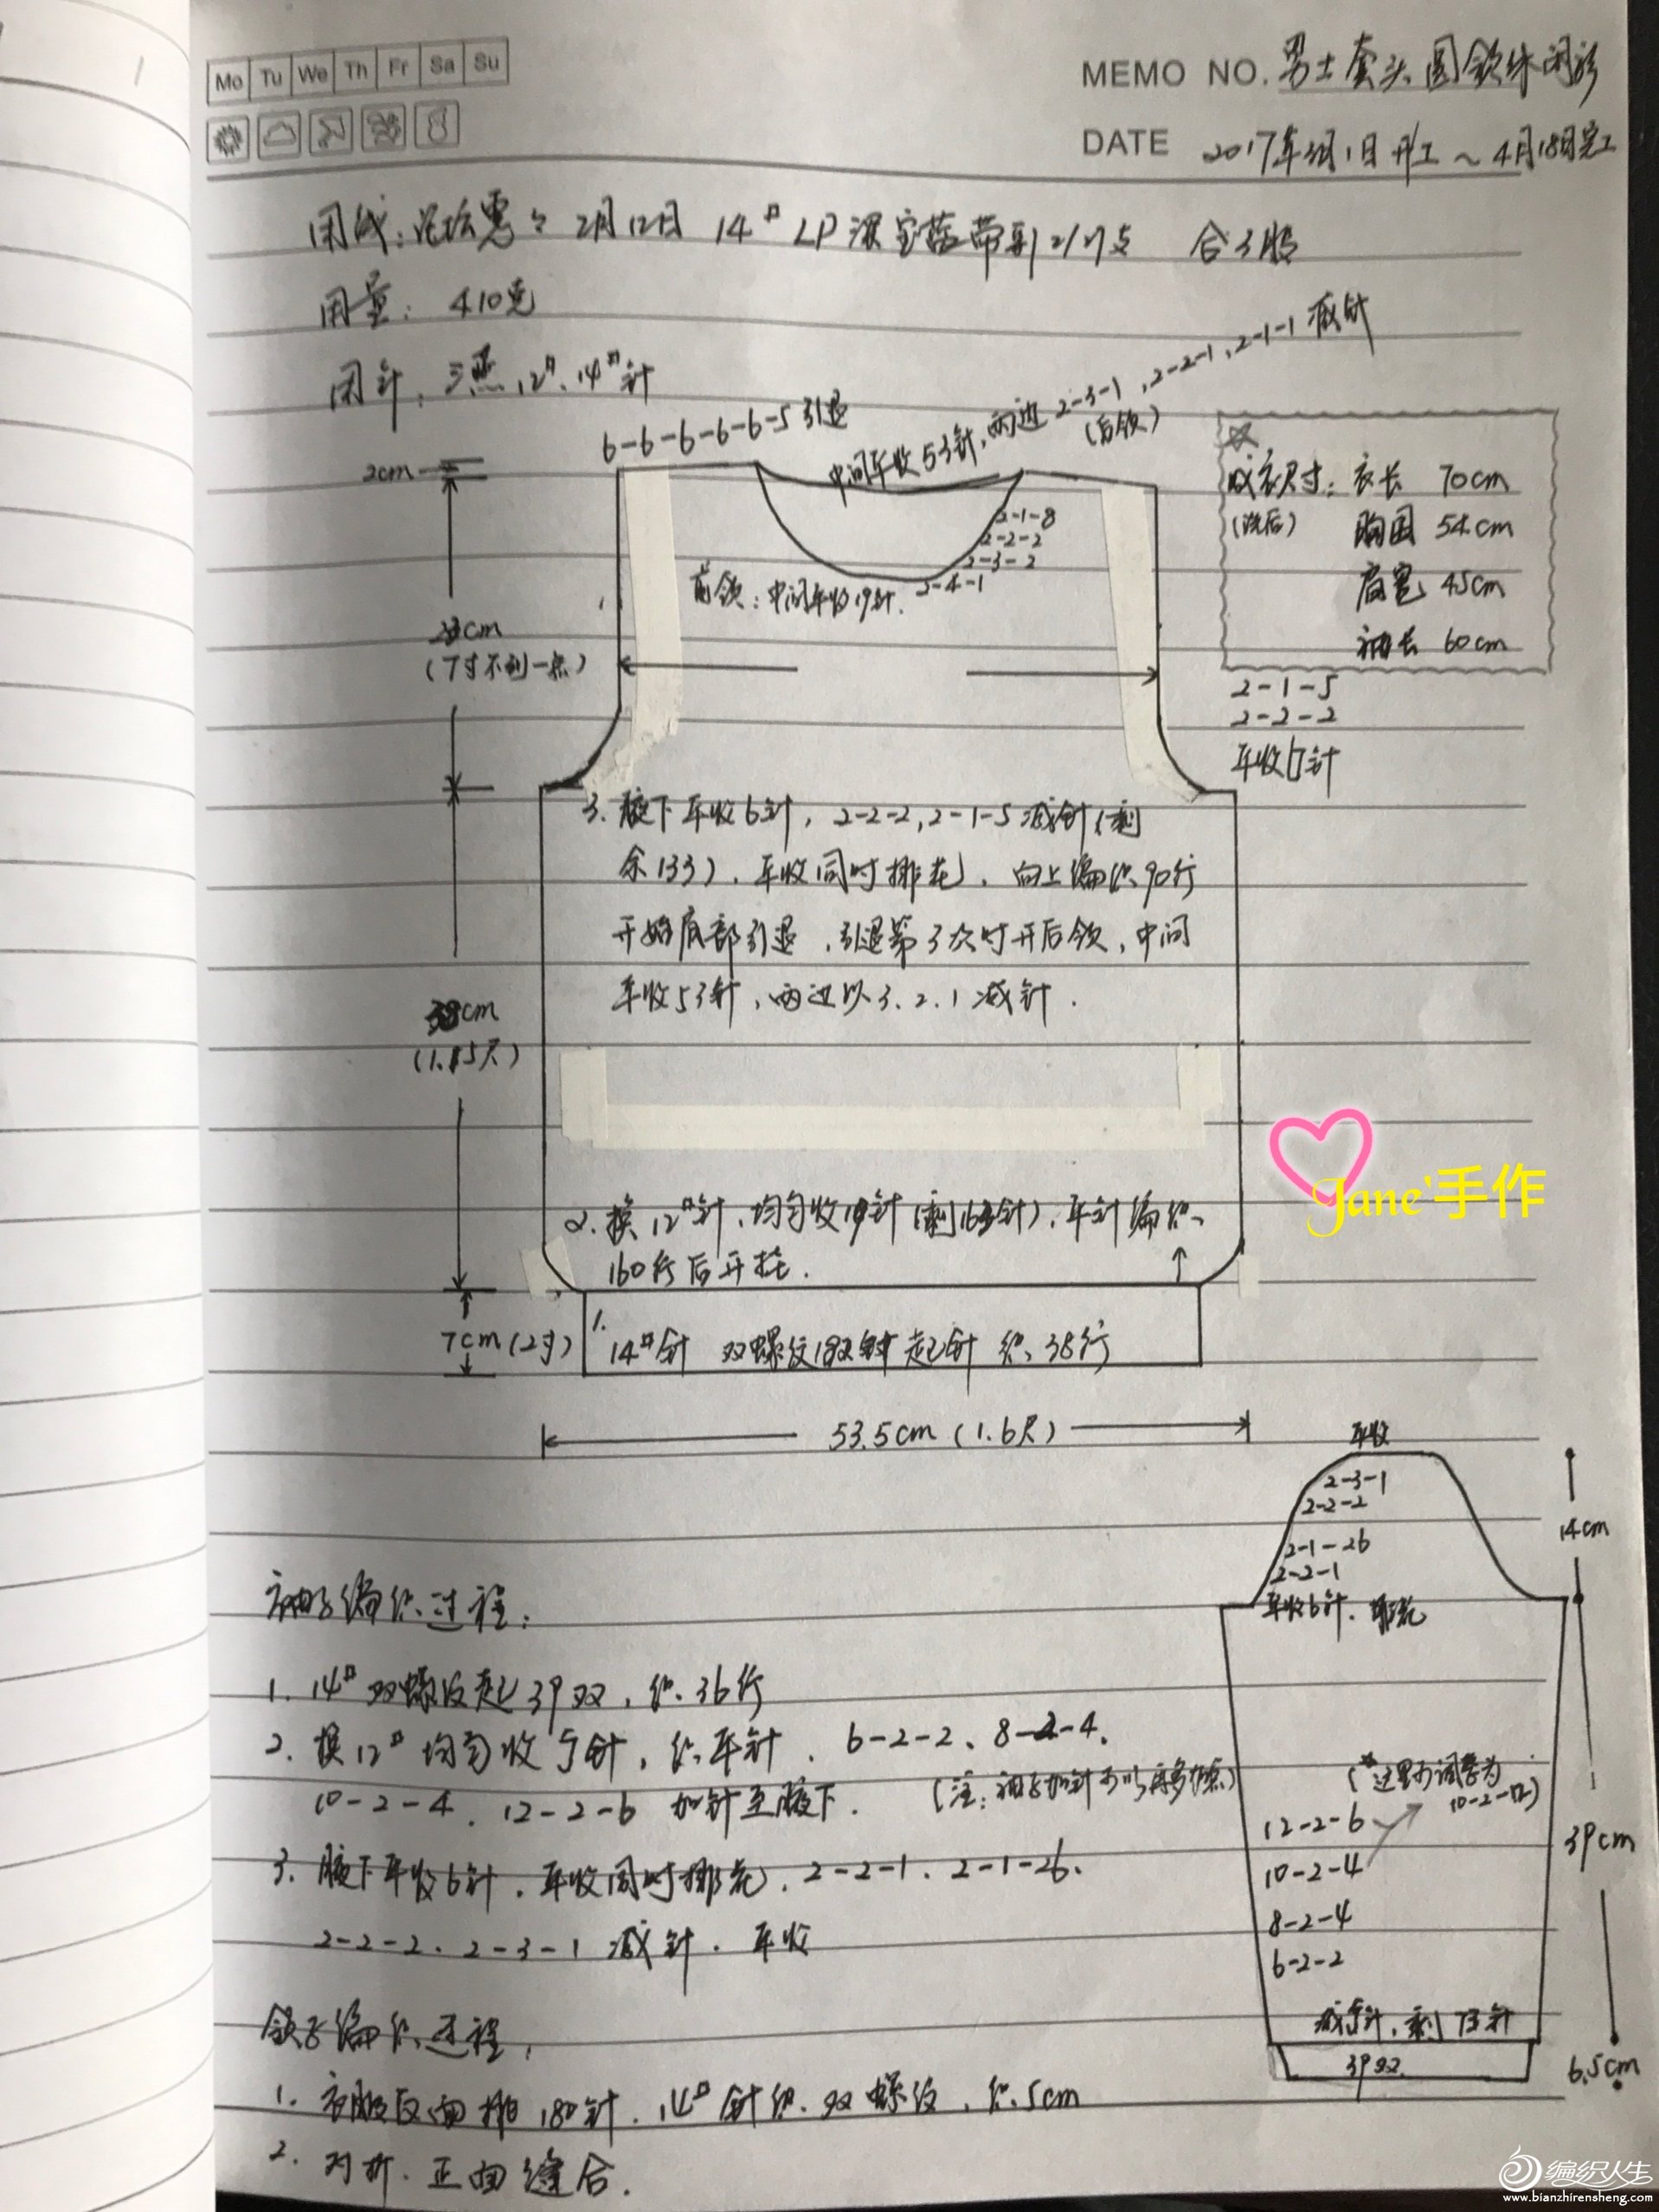 Mo Tu We Th Fr Sa Su
MEMO NO. 男士套头圆领休闲衫
DATE 2017年3月1日开工～4月18日完工
用线: 2月12日 14# LP深宝蓝带彩2/27支 合3股
用量: 410克
用针: 三燕12#、14#针
6-6-6-6-6-5引退
中间平收53针,两边2-3-1,2-2-1,2-1-1减针
(后领)
2cm
☆
成衣尺寸: 衣长 70cm
(洗后) 胸围 54cm
肩宽 45cm
袖长 60cm
2-1-8
2-2-2
2-3-2
2-4-1
前领: 中间平收19针.
23cm
(7寸不到一点)
2-1-5
2-2-2
平收6针
3. 腋下平收6针, 2-2-2, 2-1-5减针(剩
余133). 平收同时排花. 向上编织90行
开始肩部引退, 引退第3次时开后领, 中间
平收53针, 两边以3.2.1减针.
38cm
(1.15尺)
Jane'手作
2. 换12#针, 均匀收19针(剩163针), 平针编织
160行后开挂.
7cm(2寸)
1.
14#针 双螺纹 起针 织38行
53.5cm (1.6尺)
平收
2-3-1
2-2-2
2-1-26
2-2-1
平收6针. 排花
14cm
袖子编织过程:
1. 14#双螺纹起39双, 织36行
2. 换12#均匀收5针, 织平针. 6-2-2、8-2-4.
10-2-4. 12-2-6 加针至腋下. (注: 袖子加针可以再多些)
3. 腋下平收6针. 平收同时排花. 2-2-1. 2-1-26.
2-2-2. 2-3-1减针. 平收
(*这里可调整为
10-2-12)
12-2-6
10-2-4
8-2-4
6-2-2
39cm
减5针, 剩73针
39双
6.5cm
领子编织过程:
1. 衣服反面挑180针. 14#针织双螺纹, 织5cm
2. 对折. 正面缝合.
编织人生
www.bianzhirensheng.com